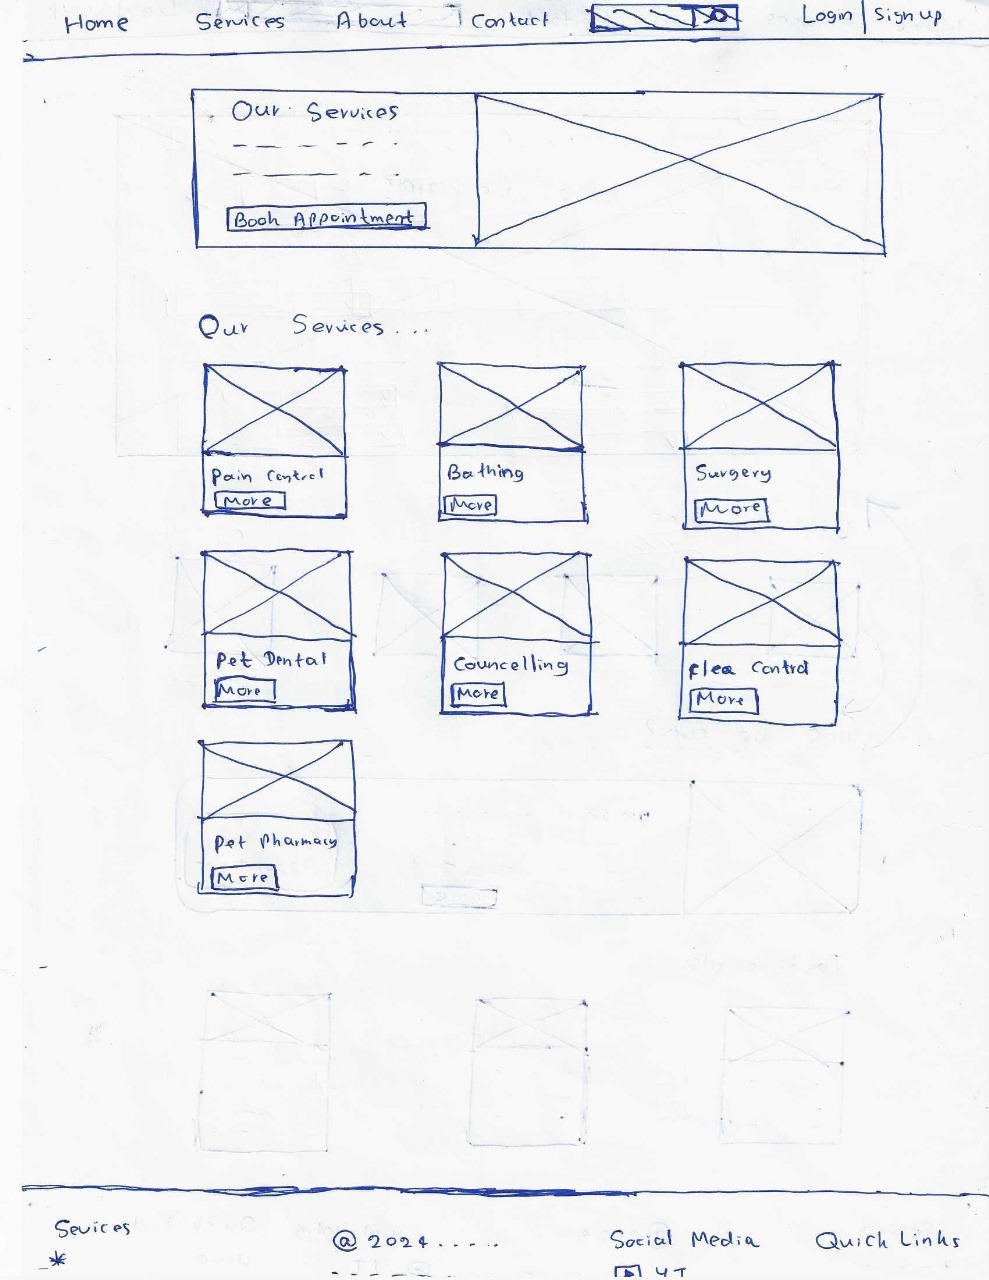 Home Services About Contact Login | Sign up
Our Services
Book Appointment
Our Services...
Pain Control
More
Bathing
More
Surgery
More
Pet Dental
More
Councelling
More
Flea Control
More
Pet Pharmacy
More
Sevices
@ 2024.....
Social Media
Quick Links
*
YT